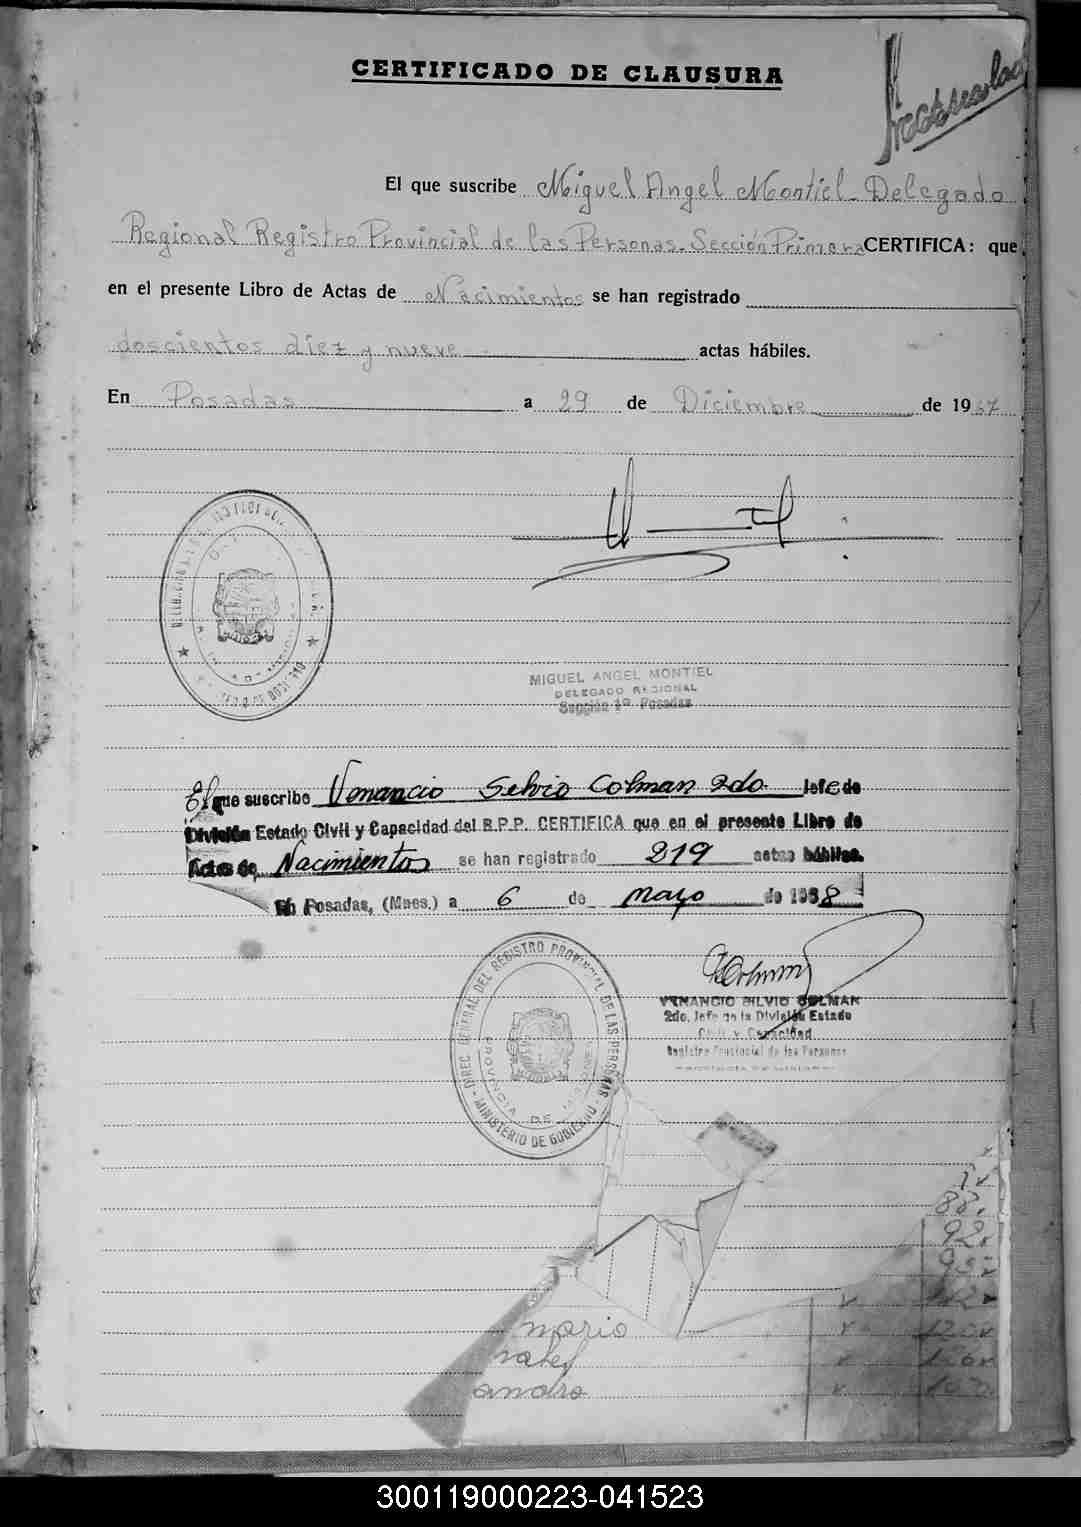 CERTIFICADO DE CLAUSURA
El que suscribe Miguel Angel Montiel - Delegado
Regional Registro Provincial de las Personas - Sección Primera CERTIFICA: que
en el presente Libro de Actas de Nacimientos se han registrado
doscientos diez y nueve actas hábiles.
En Posadas a 29 de Diciembre de 1967
MIGUEL ANGEL MONTIEL
DELEGADO REGIONAL
Sección 1º Posadas
El que suscribe Venancio Silvio Colman 2do. Jefe de
División Estado Civil y Capacidad del R.P.P. CERTIFICA que en el presente Libro de
Actas de Nacimientos se han registrado 219 actas hábiles.
En Posadas, (Mnes.) a 6 de marzo de 1968
DIREC. GENERAL DEL REGISTRO PROVINCIAL DE LAS PERSONAS
PROVINCIA DE MISIONES
MINISTERIO DE GOBIERNO
VENANCIO SILVIO COLMAN
2do. Jefe de la División Estado
Civil y Capacidad
Registro Provincial de las Personas
88
92
mario
120
andro
300119000223-041523